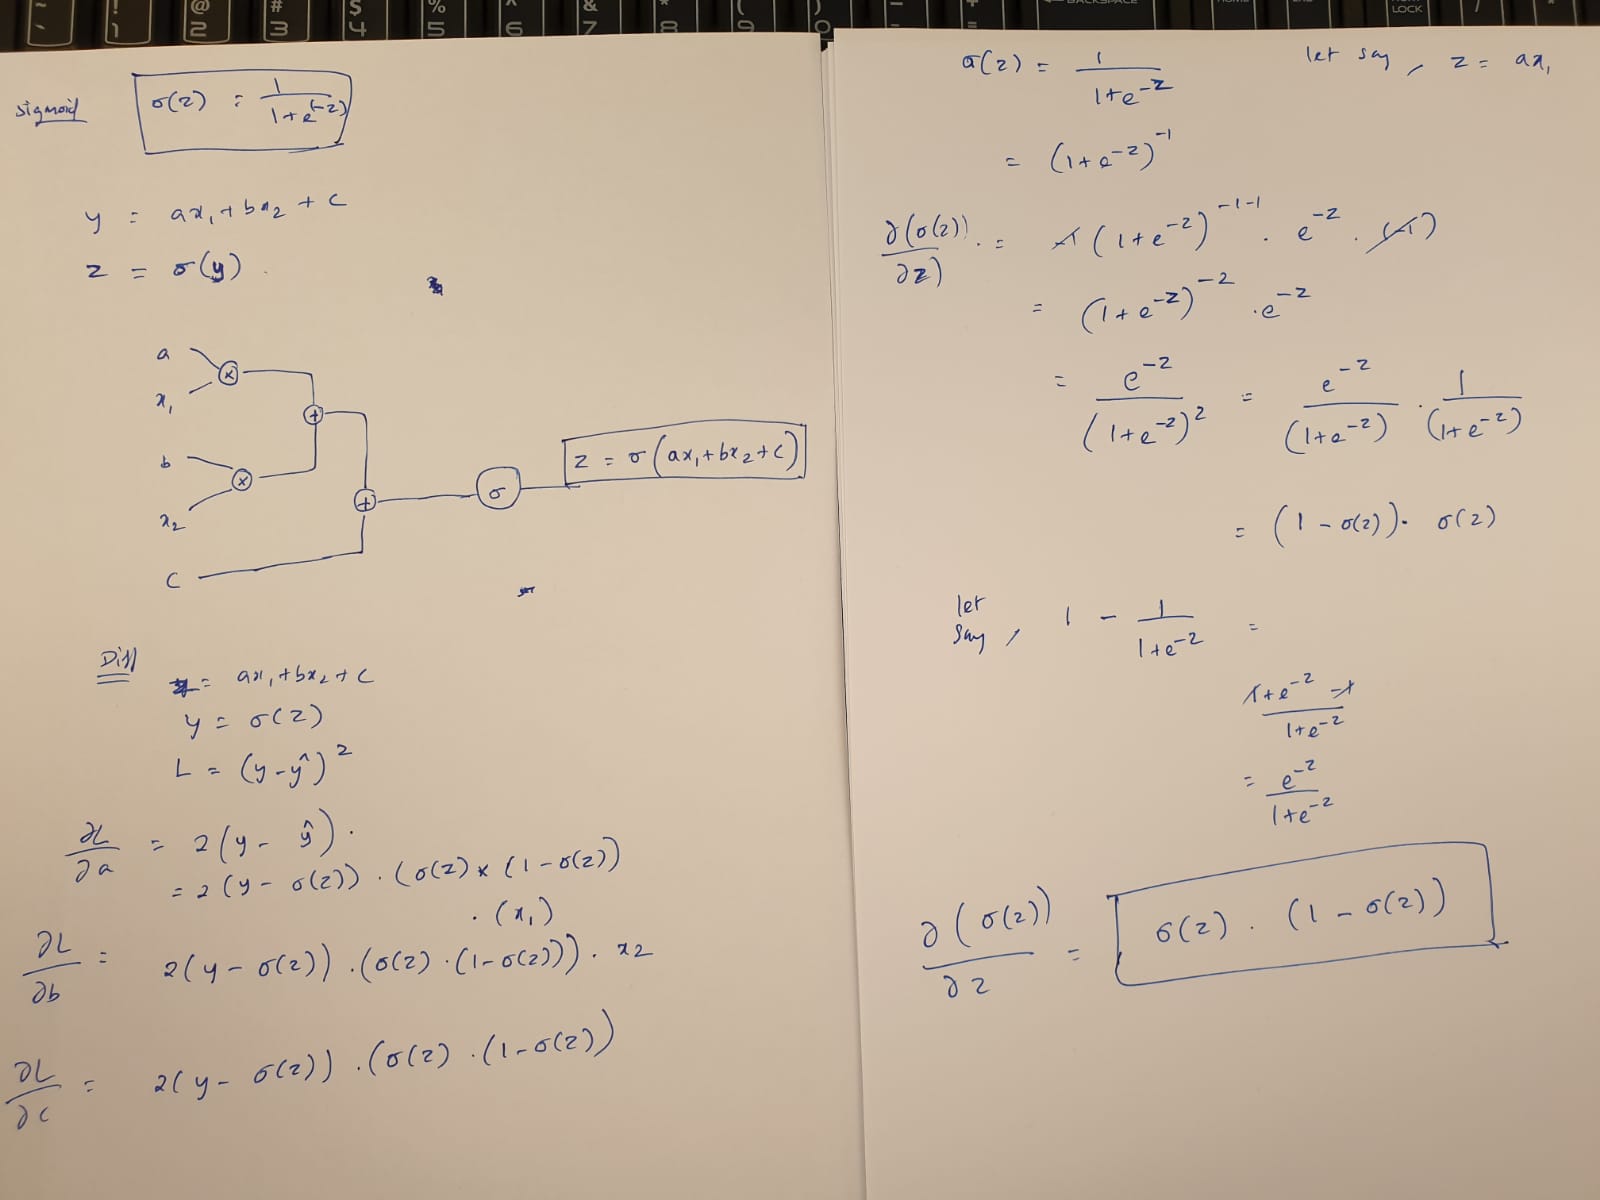 ~ ! @ # $ % ^ & * ( ) - + BACKSPACE
` 1 2 3 4 5 6 7 8 9 0 - = LOCK /
sigmoid σ(z) = 1/(1+e^(-z))
y = ax₁ + bx₂ + c
z = σ(y)
a
×
x₁
+
b
×
x₂
+
σ
z = σ(ax₁+bx₂+c)
c
Diff
= ax₁+bx₂+c
y = σ(z)
L = (y-ŷ)²
∂L/∂a = 2(y - ŷ).
= 2(y - σ(z)) . (σ(z) × (1-σ(z))
. (x₁)
∂L/∂b = 2(y - σ(z)) . (σ(z) . (1-σ(z))) . x2
∂L/∂c = 2(y - σ(z)) . (σ(z) . (1-σ(z))
σ(z) = 1/(1+e^-z) let say, z = ax₁
= (1+e^-z)^-1
∂(σ(z))/∂z) = -1(1+e^-z)^-1-1 . e^-z . (-1)
= (1+e^-z)^-2 . e^-z
= e^-z/(1+e^-z)² = e^-z/(1+e^-z) . 1/(1+e^-z)
= (1 - σ(z)) . σ(z)
let say, 1 - 1/(1+e^-z) =
1+e^-z -1/1+e^-z
= e^-z/1+e^-z
∂(σ(z))/∂z = σ(z) . (1 - σ(z))